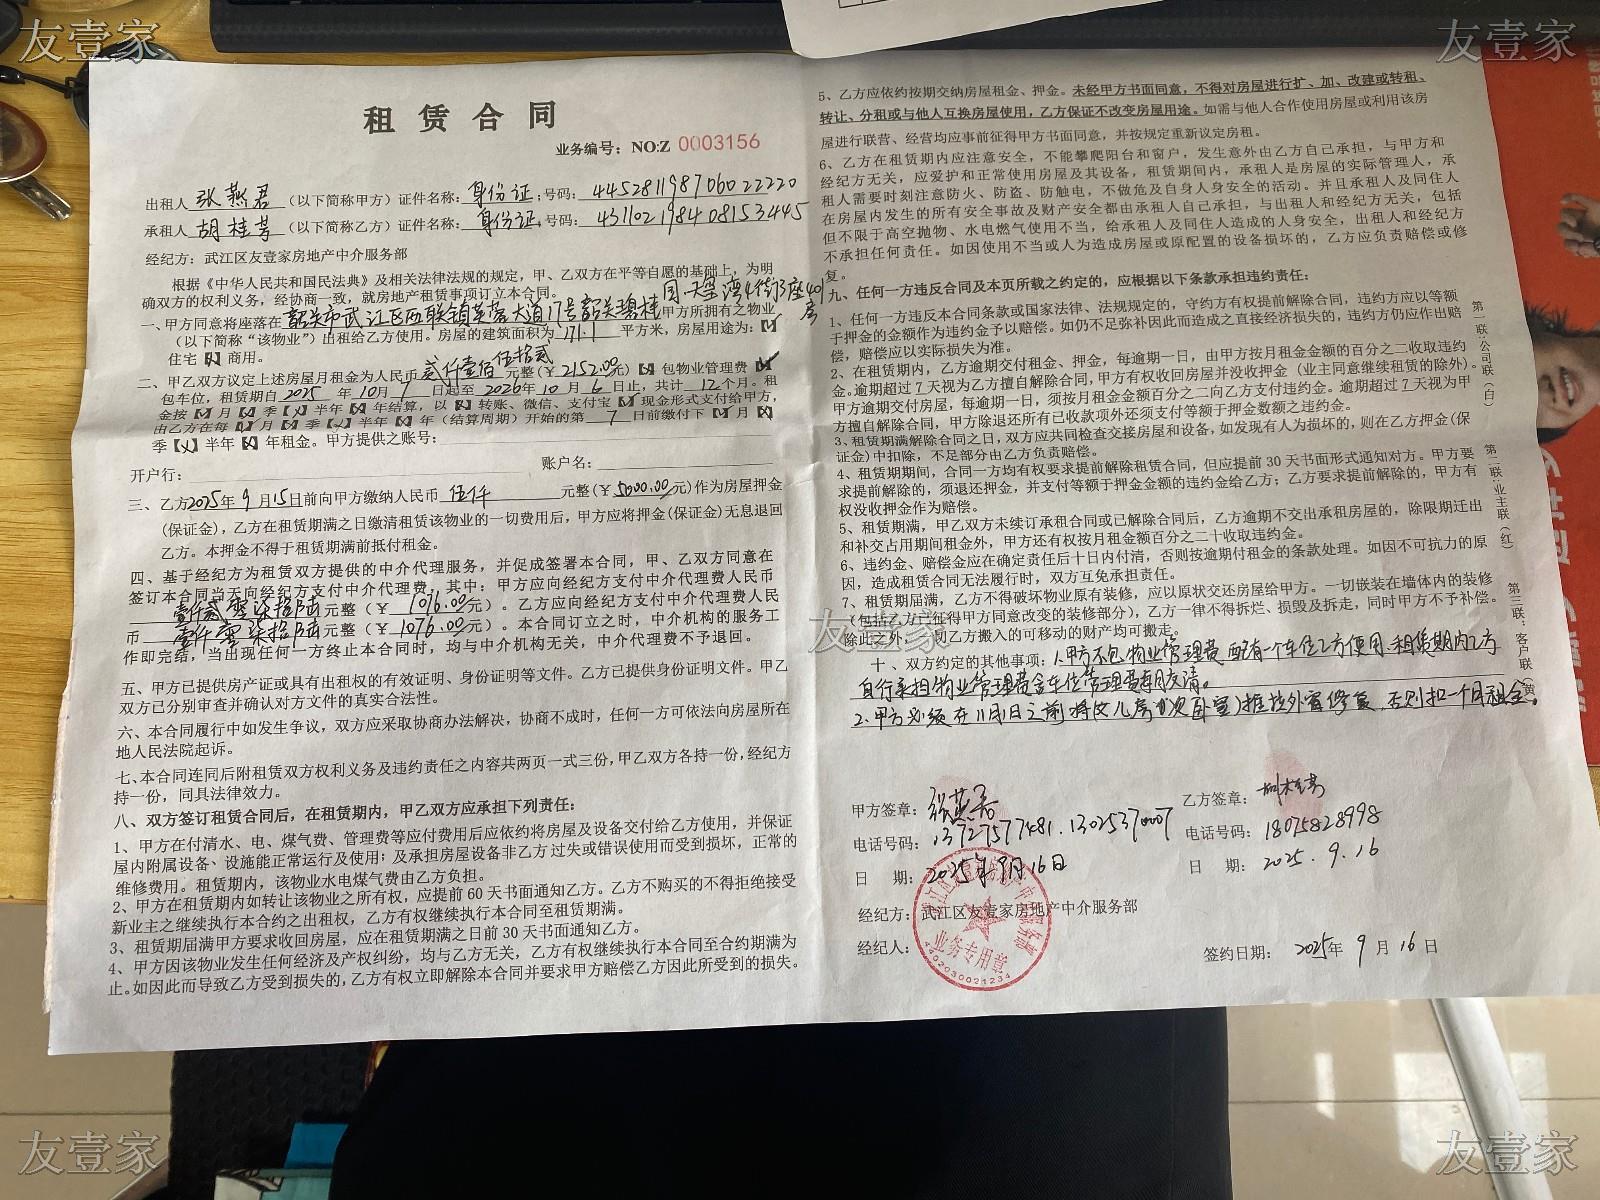 友壹家
友壹家
租赁合同
业务编号：NO:Z 0003156
出租人 张燕君 （以下简称甲方）证件名称：身份证；号码：445281198706022220
承租人 胡桂芳 （以下简称乙方）证件名称：身份证；号码：431102198408153445
经纪方：武江区友壹家房地产中介服务部
根据《中华人民共和国民法典》及相关法律法规的规定，甲、乙双方在平等自愿的基础上，为明
确双方的权利义务，经协商一致，就房地产租赁事项订立本合同。
一、甲方同意将座落在 韶关市武江区西联镇芙蓉大道17号韶关碧桂园·天玺湾4街3座401房 甲方所拥有之物业
（以下简称“该物业”）出租给乙方使用。房屋的建筑面积为 171.1 平方米，房屋用途为：【】
住宅【】商用。
二、甲乙双方议定上述房屋月租金为人民币 贰仟壹佰伍拾贰 元整（￥2152.00元）【】包物业管理费【】
包车位，租赁期自 2025 年 10月 7 日起至 2026年 10 月 6 日止，共计 12 个月。租
金按【】月【】季【】半年【】年结算，以【】转账、微信、支付宝【】现金形式支付给甲方，
由乙方在每【】月【】季【】半年【】年（结算周期）开始的第 7 日前缴付下【】月【】
季【】半年【】年租金。甲方提供之账号：
开户行： 账户名：
三、乙方2025年 9 月 15日前向甲方缴纳人民币 伍仟 元整（￥5000.00元）作为房屋押金
（保证金），乙方在租赁期满之日缴清租赁该物业的一切费用后，甲方应将押金（保证金）无息退回
乙方。本押金不得于租赁期满前抵付租金。
四、基于经纪方为租赁双方提供的中介代理服务，并促成签署本合同，甲、乙双方同意在
签订本合同当天向经纪方支付中介代理费，其中：甲方应向经纪方支付中介代理费人民币
元整（￥ 1076.00元）。乙方应向经纪方支付中介代理费人民
币 壹仟零柒拾陆元整（￥ 1076.00元）。本合同订立之时，中介机构的服务工
作即完结，当出现任何一方终止本合同时，均与中介机构无关，中介代理费不予退回。
五、甲方已提供房产证或具有出租权的有效证明、身份证明等文件。乙方已提供身份证明文件。甲乙
双方已分别审查并确认对方文件的真实合法性。
六、本合同履行中如发生争议，双方应采取协商办法解决，协商不成时，任何一方可依法向房屋所在
地人民法院起诉。
七、本合同连同后附租赁双方权利义务及违约责任之内容共两页一式三份，甲乙双方各持一份，经纪方
持一份，同具法律效力。
八、双方签订租赁合同后，在租赁期内，甲乙双方应承担下列责任：
1、甲方在付清水、电、煤气费、管理费等应付费用后应依约将房屋及设备交付给乙方使用，并保证
屋内附属设备、设施能正常运行及使用；及承担房屋设备非乙方过失或错误使用而受到损坏，正常的
维修费用。租赁期内，该物业水电煤气费由乙方负担。
2、甲方在租赁期内如转让该物业之所有权，应提前 60 天书面通知乙方。乙方不购买的不得拒绝接受
新业主之继续执行本合约之出租权，乙方有权继续执行本合同至租赁期满。
3、租赁期届满甲方要求收回房屋，应在租赁期满之日前 30 天书面通知乙方。
4、甲方因该物业发生任何经济及产权纠纷，均与乙方无关，乙方有权继续执行本合同至合约期满为
止。如因此而导致乙方受到损失的，乙方有权立即解除本合同并要求甲方赔偿乙方因此所受到的损失。
5、乙方应依约按期交纳房屋租金、押金。未经甲方书面同意，不得对房屋进行扩、加、改建或转租、
转让、分租或与他人互换房屋使用，乙方保证不改变房屋用途。如需与他人合作使用房屋或利用该房
屋进行联营、经营均应事前征得甲方书面同意，并按规定重新议定房租。
6、乙方在租赁期内应注意安全，不能攀爬阳台和窗户，发生意外由乙方自己承担，与甲方和
经纪方无关，应爱护和正常使用房屋及其设备，租赁期间内，承租人是房屋的实际管理人，承
租人需要时刻注意防火、防盗、防触电，不做危及自身人身安全的活动。并且承租人及同住人
在房屋内发生的所有安全事故及财产安全都由承租人自己承担，与出租人和经纪方无关，包括
但不限于高空抛物、水电燃气使用不当，给承租人及同住人造成的人身安全，出租人和经纪方
不承担任何责任。如因使用不当或人为造成房屋或原配置的设备损坏的，乙方应负责赔偿或修
复。
九、任何一方违反合同及本页所载之约定的，应根据以下条款承担违约责任：
1、任何一方违反本合同条款或国家法律、法规规定的，守约方有权提前解除合同，违约方应以等额
于押金的金额作为违约金予以赔偿。如仍不足弥补因此而造成之直接经济损失的，违约方仍应作出赔
偿，赔偿应以实际损失为准。
2、在租赁期内，乙方逾期交付租金、押金，每逾期一日，由甲方按月租金金额的百分之二收取违约
金。逾期超过 7 天视为乙方擅自解除合同，甲方有权收回房屋并没收押金（业主同意继续租赁的除外）。
甲方逾期交付房屋，每逾期一日，须按月租金金额百分之二向乙方支付违约金。逾期超过 7 天视为甲
方擅自解除合同，甲方除退还所有已收款项外还须支付等额于押金数额之违约金。
3、租赁期满解除合同之日，双方应共同检查交接房屋和设备，如发现有人为损坏的，则在乙方押金（保
证金）中扣除，不足部分由乙方负责赔偿。
4、租赁期期间，合同一方均有权要求提前解除租赁合同，但应提前 30 天书面形式通知对方。甲方要
求提前解除的，须退还押金，并支付等额于押金金额的违约金给乙方；乙方要求提前解除的，甲方有
权没收押金作为赔偿。
5、租赁期满，甲乙双方未续订承租合同或已解除合同后，乙方逾期不交出承租房屋的，除限期迁出
和补交占用期间租金外，甲方还有权按月租金额百分之二十收取违约金。
6、违约金、赔偿金应在确定责任后十日内付清，否则按逾期付租金的条款处理。如因不可抗力的原
因，造成租赁合同无法履行时，双方互免承担责任。
7、租赁期届满，乙方不得破坏物业原有装修，应以原状交还房屋给甲方。一切嵌装在墙体内的装修
（包括乙方已征得甲方同意改变的装修部分），乙方一律不得拆烂、损毁及拆走，同时甲方不予补偿。
除此之外，一切乙方搬入的可移动的财产均可搬走。
十、双方约定的其他事项：1.甲方不包物业管理费，配有一个车位乙方使用，租赁期内乙方
自行承担物业管理费含车位管理费每月交清。
2.甲方必须在11月1日之前将女儿房（次卧室）推拉外窗修复，否则扣一个月租金。
第一联：公司联（白）
第二联：业主联（红）
第三联：客户联（黄）
友壹家
甲方签章：张燕君
乙方签章：胡桂芳
电话号码：13727577481．13025370007
电话号码：18075828998
日 期：2025年9月16日
日 期：2025.9.16
经纪方：武江区友壹家房地产中介服务部
经纪人：
业务专用章
4402030021234
签约日期：2025年 9 月 16 日
友壹家
友壹家